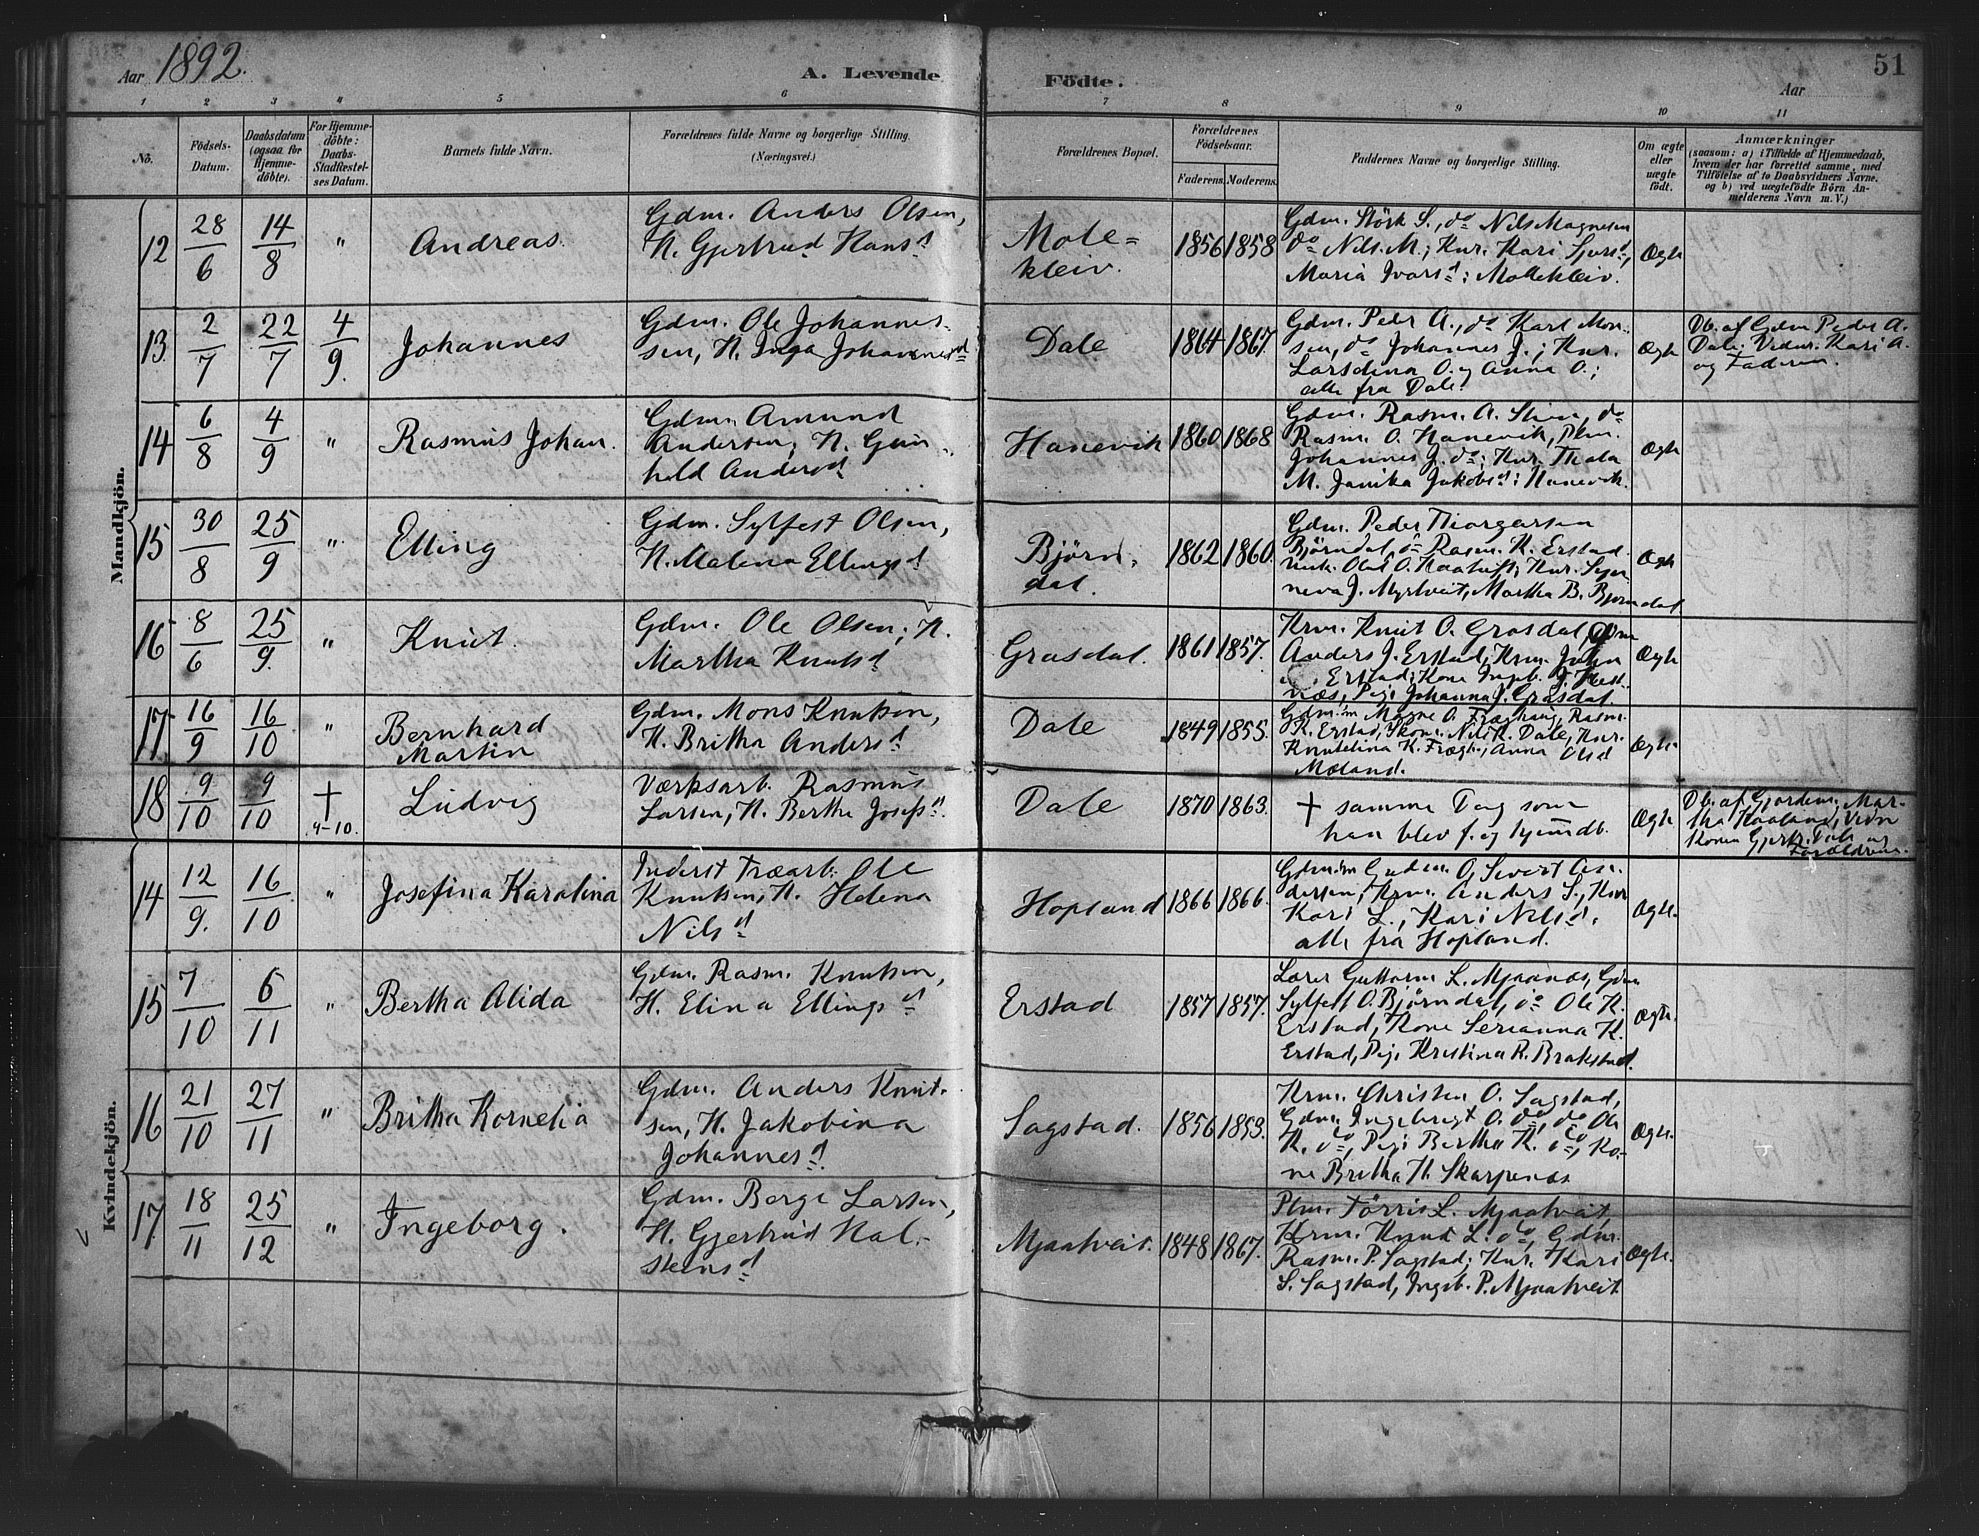 Aar 1892.
A. Levende Födte.
51
Aar
1 2 3 4 5 6 7 8 9 10 11
No.
Födsels-
Datum.
Daabsdatum
(ogsaa for
Hjemme-
döbte).
For Hjemme-
döbte:
Daabs-
Stadfæstel-
ses Datum.
Barnets fulde Navn.
Forældrenes fulde Navne og borgerlige Stilling.
(Næringsvei.)
Forældrenes Bopæl.
Forældrenes
Födselsaar.
Faderens. Moderens.
Faddernes Navne og borgerlige Stilling.
Om ægte
eller
uægte
født.
Anmærkninger
(saasom: a) i Tilfælde af Hjemmedaab,
hvem der har forrettet samme, med
Tilföielse af to Daabsvidners Navne.
og b) ved uægtefödte Börn An-
melderens Navn m.V.)
Mandkjön.
12
28/6
14/8
"
Andreas.
Gdm. Anders Olsen,
H. Gjertrud Hansd
Mole=
kleiv.
1856 1858
Gdm. Störk S., do Nils Magnesen
do Nils M.; Kur. Kari Sjursd,
Maria Ivarsd: Mollekleiv.
Ægte
13
2/7
22/7
4/9.
Johannes
Gdm. Ole Johannes-
sen, H. Inga Johannesd
Dale
1864 1867.
Gdm. Peder A., do Karl Mon-
sen, do Johannes J.; Kur.
Larsdina O. og Anna O.;
alle fra Dale.
Ægte
Db. af Gdm Peder A.
Dale. Vidnr. Kari A.
og Faderen.
14
6/8
4/9
"
Rasmus Johan.
Gdm. Amund
Andersen, H. Gun-
hild Andersd
Hanevik
1860 1868
Gdm. Rasm. A. Stien, do
Rasm. O. Hanevik, Plm.
Johannes J. do; Kur. Thala
M. Janika Jakobsd: Hanevik.
Ægte
15
30/8
25/9
"
Elling
Gdm. Sylfest Olsen,
H. Malena Ellingsd
Björn-
dal.
1862 1860.
Gdm. Peder Thorgersen
Björndal, do Rasm. K. Erstad
Olai O. Kur. Syn-
neva J. Myrtveit, Martha B. Bjorndal
Ægte
16
8/6
25/9.
"
Knut.
Gdm. Ole Olsen, H.
Martha Knutsd
Grasdal.
1861 1857.
Krm. Knut O. Grasdal, Gdm
Anders J. Erstad, Krm. Johan
Erstad; Kone Ingeb. J. Hest-
næs, Pig. Johanna J. Grasdal.
Ægte
17
16/9
16/10
"
Bernhard
Martin
Gdm. Mons Knutsen,
H. Britha Andersd
Dale
1849 1855.
Gdm:m Magne O. Fræghaug, Rasm.
K. Erstad, Nils K. Dale, Kur.
Knutelina K. Frægh., Anna Olsd
Mæland.
Ægte.
18
9/10
9/10
† 4-10.
Ludvig
Værksarb. Rasmus
Larsen, H. Bertha Josefsd.
Dale
1870 1863.
† samme Dag som
han blev f. og hjemdb.
Ægte
Db. af Gjordem. Mar-
tha Haaland, Vidn
Konen Gjertr. Dale og
Forældrene.
Kvindekjön.
14
12/9.
16/10
"
Josefina Karolina
Inderst Træarb. Ole
Knutsen, H. Helena
Nilsd
Hopland
1866 1866.
Gdm:m Gudm. O, Sivert An-
dersen, Krm. Anders S., Kur
Kari L., Kari Nilsd,
alle fra Hopland.
Ægte.
15
7/10
6/11
"
Bertha Alida
Gdm. Rasm. Knutsen,
H. Elina Ellingsd
Erstad
1857 1857.
Lærer Guttorm L. Mjaanæs, Gdm
Sylfest O. Björndal, do Ole K.
Erstad, Kone Serianna K.
Erstad, Pig. Kristina R. Brakstad.
Ægte.
16
21/10
27/11
"
Britha Kornelia
Gdm. Anders Knut-
sen, H. Jakobina
Johannesd.
Sagstad.
1856 1853.
Krm. Christen O. Sagstad,
Gdm. Ingebrigt O. do, do Ole
K. do, Pig. Bertha K. do, Ko-
ne Britha H. Skarpenæs
Ægte.
17.
18/11
25/12
"
Ingeborg.
Gdm. Berge Larsen,
H. Gjertrud Hal-
steinsd
Mjaatveit.
1848 1867.
Plm. Törris L. Mjaatveit,
Krm. Knut L. do, Gdm.
Rasm. P. Sagstad; Kur. Kari
S. Sagstad, Ingeb. P. Mjaatveit.
Ægte.